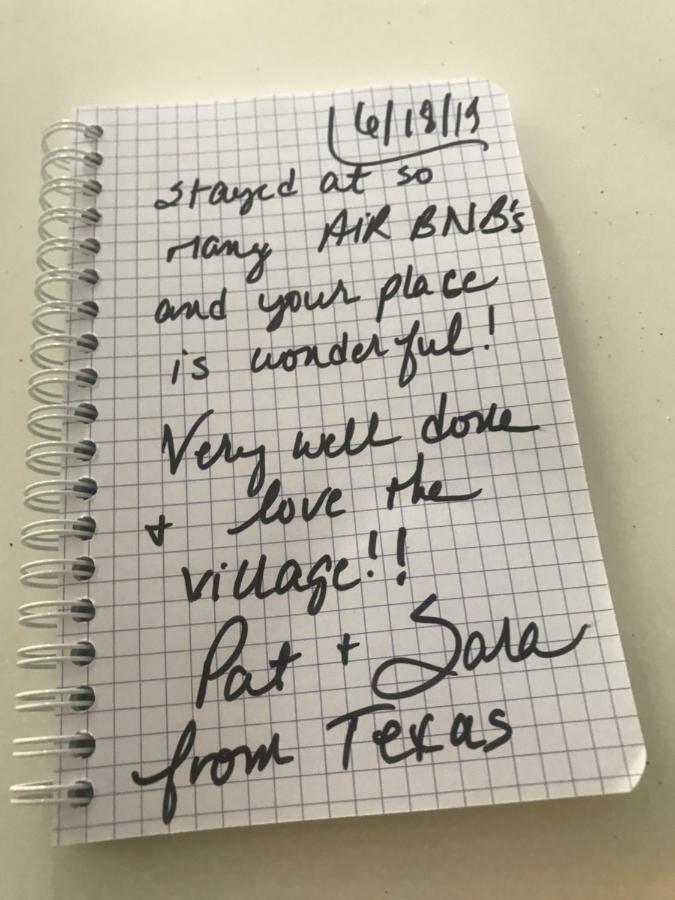 6/18/19
Stayed at so
many AIR BNB's
and your place
is wonderful!
Very well done
+ love the
village!!
Pat + Sara
from Texas